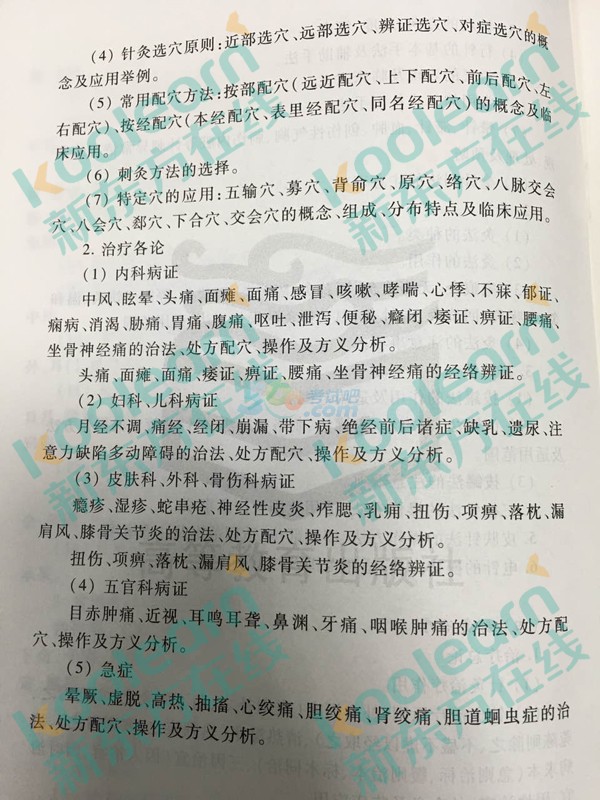 (4) 针灸选穴原则:近部选穴、远部选穴、辨证选穴、对症选穴的概
念及应用举例。
(5) 常用配穴方法:按部配穴(远近配穴、上下配穴、前后配穴、左
右配穴)、按经配穴(本经配穴、表里经配穴、同名经配穴)的概念及临
床应用。
(6) 刺灸方法的选择。
(7) 特定穴的应用:五输穴、募穴、背俞穴、原穴、络穴、八脉交会
穴、八会穴、郄穴、下合穴、交会穴的概念、组成、分布特点及临床应用。
2. 治疗各论
(1) 内科病证
中风、眩晕、头痛、面瘫、面痛、感冒、咳嗽、哮喘、心悸、不寐、郁证、
痫病、消渴、胁痛、胃痛、腹痛、呕吐、泄泻、便秘、癃闭、痿证、痹证、腰痛、
坐骨神经痛的治法、处方配穴、操作及方义分析。
头痛、面瘫、面痛、痿证、痹证、腰痛、坐骨神经痛的经络辨证。
(2) 妇科、儿科病证
月经不调、痛经、经闭、崩漏、带下病、绝经前后诸症、缺乳、遗尿、注
意力缺陷多动障碍的治法、处方配穴、操作及方义分析。
(3) 皮肤科、外科、骨伤科病证
瘾疹、湿疹、蛇串疮、神经性皮炎、痄腮、乳痈、扭伤、项痹、落枕、漏
肩风、膝骨关节炎的治法、处方配穴、操作及方义分析。
扭伤、项痹、落枕、漏肩风、膝骨关节炎的经络辨证。
(4) 五官科病证
目赤肿痛、近视、耳鸣耳聋、鼻渊、牙痛、咽喉肿痛的治法、处方配
穴、操作及方义分析。
(5) 急症
晕厥、虚脱、高热、抽搐、心绞痛、胆绞痛、肾绞痛、胆道蛔虫症的治
法、处方配穴、操作及方义分析。
koolearn
新东方在线
考试吧
高等教育出版社